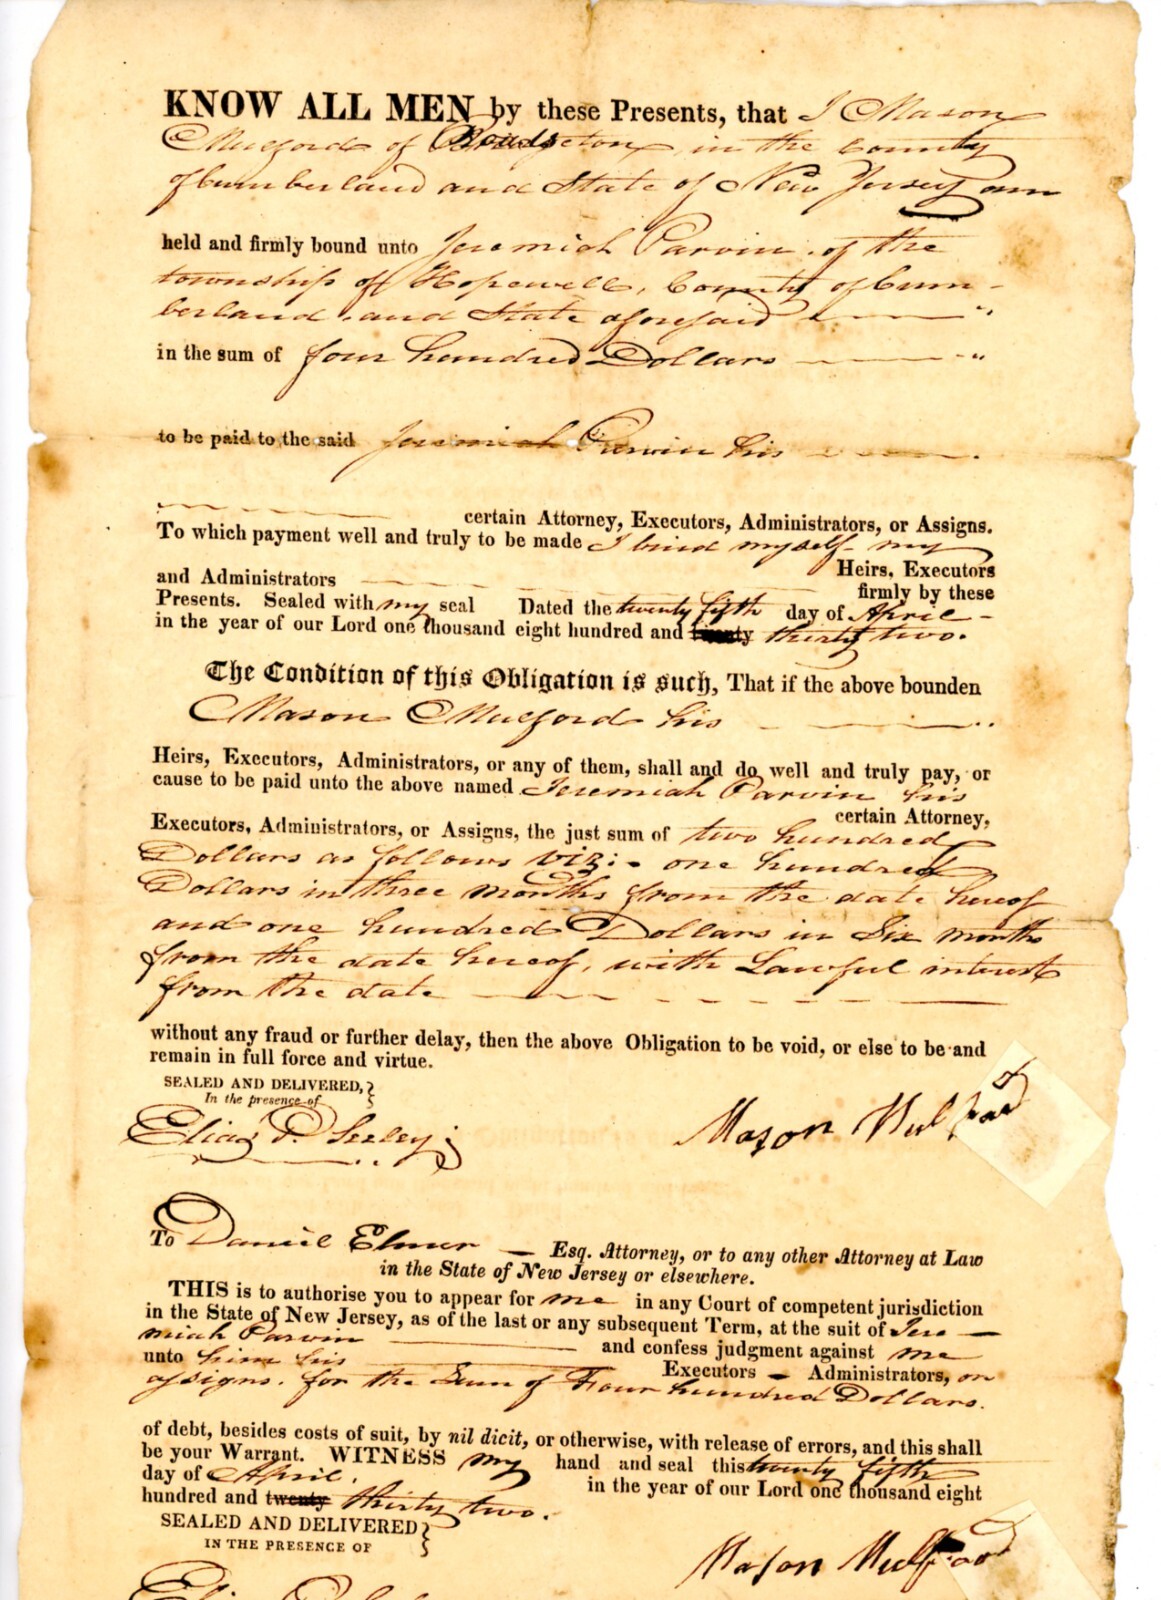 KNOW ALL MEN by these Presents, that I Mason
Mulford of Bridgeton, in the County
of Cumberland and State of New Jersey am
held and firmly bound unto Jeremiah Parvin of the
township of Hopewell, County of Cum-
berland, and State aforesaid
in the sum of four hundred Dollars
to be paid to the said Jeremiah Parvin his
certain Attorney, Executors, Administrators, or Assigns.
To which payment well and truly to be made I bind myself my
Heirs, Executors
and Administrators firmly by these
Presents. Sealed with my seal Dated the twenty fifth day of April
in the year of our Lord one thousand eight hundred and twenty thirty two.
The Condition of this Obligation is such, That if the above bounden
Mason Mulford his
Heirs, Executors, Administrators, or any of them, shall and do well and truly pay, or
cause to be paid unto the above named Jeremiah Parvin his
certain Attorney,
Executors, Administrators, or Assigns, the just sum of two hundred
Dollars as follows viz:- one hundred
Dollars in three months from the date hereof
and one hundred Dollars in Six months
from the date hereof, with Lawful interest
from the date
without any fraud or further delay, then the above Obligation to be void, or else to be and
remain in full force and virtue.
SEALED AND DELIVERED,
In the presence of
Elias P. Seeley
Mason Mulford
To Daniel Elmer Esq. Attorney, or to any other Attorney at Law
in the State of New Jersey or elsewhere.
THIS is to authorise you to appear for me in any Court of competent jurisdiction
in the State of New Jersey, as of the last or any subsequent Term, at the suit of Jere
miah Parvin and confess judgment against me
unto him his Executors Administrators, or
assigns. for the Sum of Four hundred Dollars.
of debt, besides costs of suit, by nil dicit, or otherwise, with release of errors, and this shall
be your Warrant. WITNESS my hand and seal this twenty fifth
day of April. in the year of our Lord one thousand eight
hundred and twenty thirty two.
SEALED AND DELIVERED
IN THE PRESENCE OF
Mason Mulford